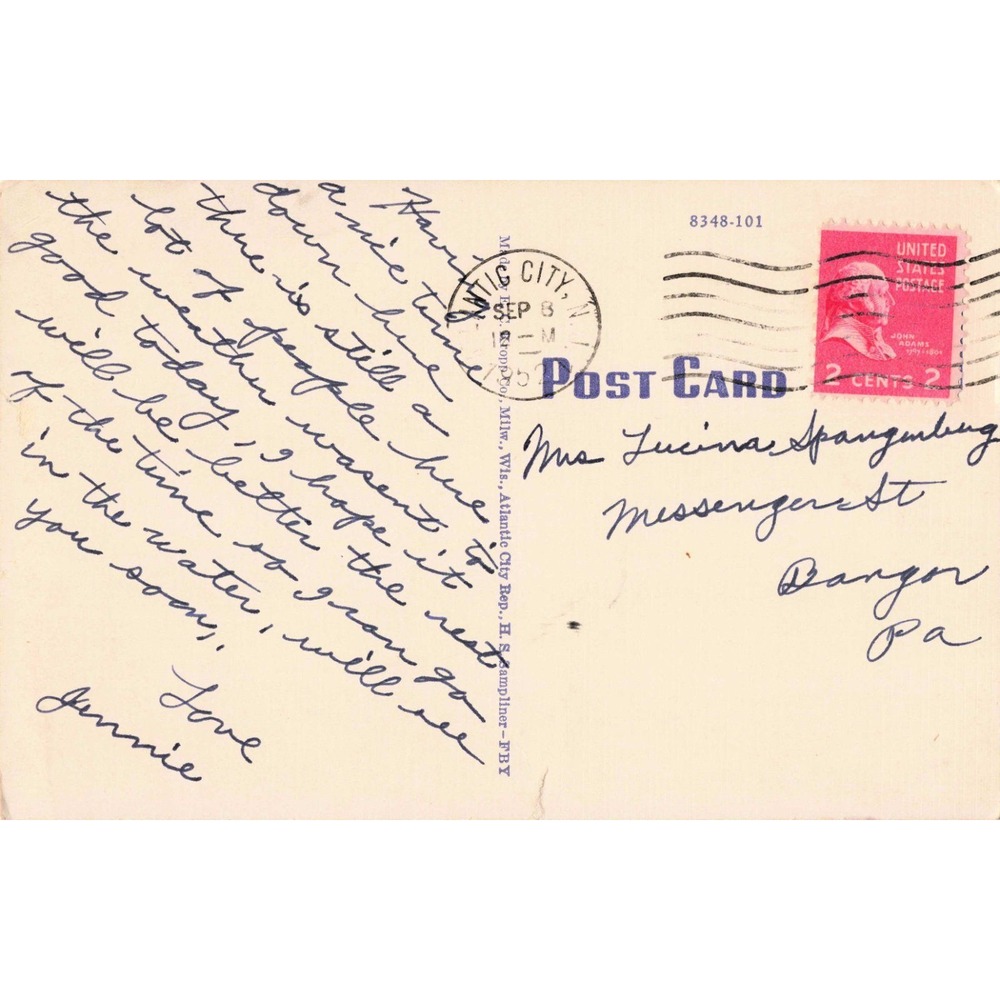 Havin
a nice time
down here
there is still a
lot of people here
the weather wasent to
good today, I hope it
will be better the rest
of the time so I can go
in the water, will see
you soon,
Love
Jennie
Co., Milw., Wis., Atlantic City Rep., H. S. Sampliner-FBY
8348-101
NTIC CITY, N
SEP 8
M
1952
POST CARD
UNITED
STATES
POSTAGE
JOHN
ADAMS
1797-1801
2 CENTS 2
Mrs Lucina Spangenburg
Messenger St
Bangor
Pa